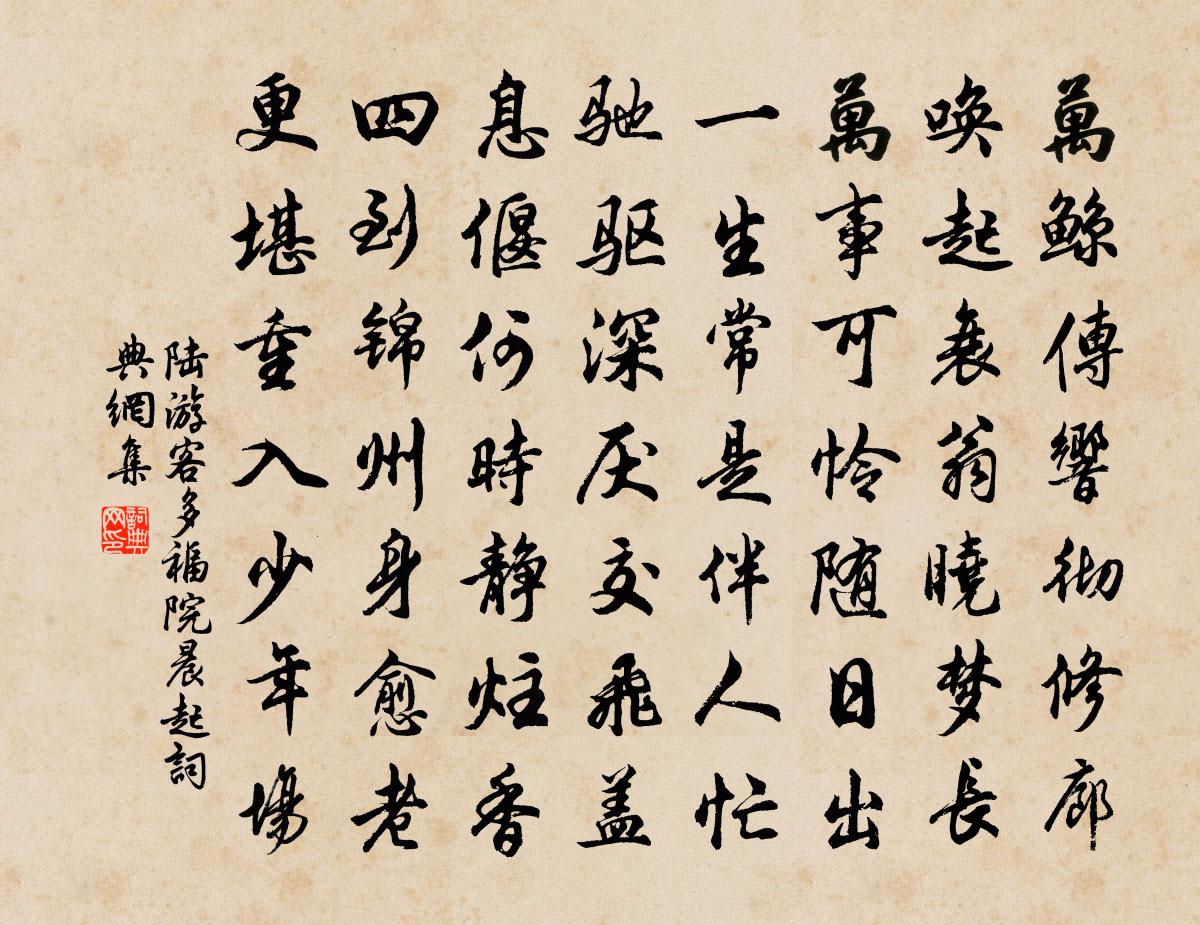 萬鲸傳響彻修廊
唤起衰翁曉梦長
萬事可怜随日出
一生常是伴人忙
驰驱深厌交飛盖
息偃何時静炷香
四到锦州身愈老
更堪重入少年場
陆游客多福院晨起詞
典網集
詞典
网印